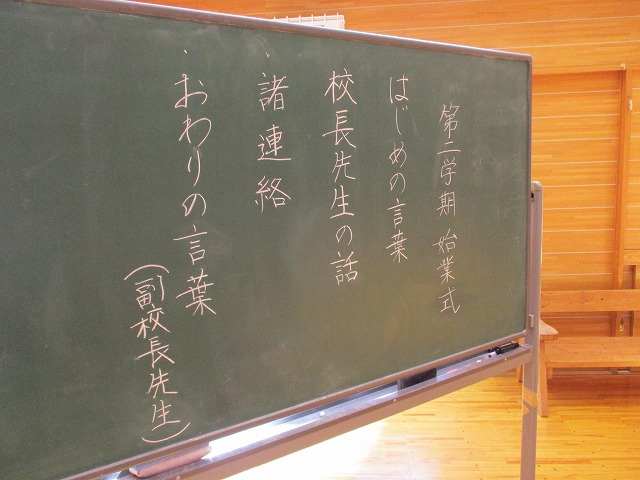 第二学期 始業式
はじめの言葉
校長先生の話
、諸連絡
、おわりの言葉
(副校長先生)